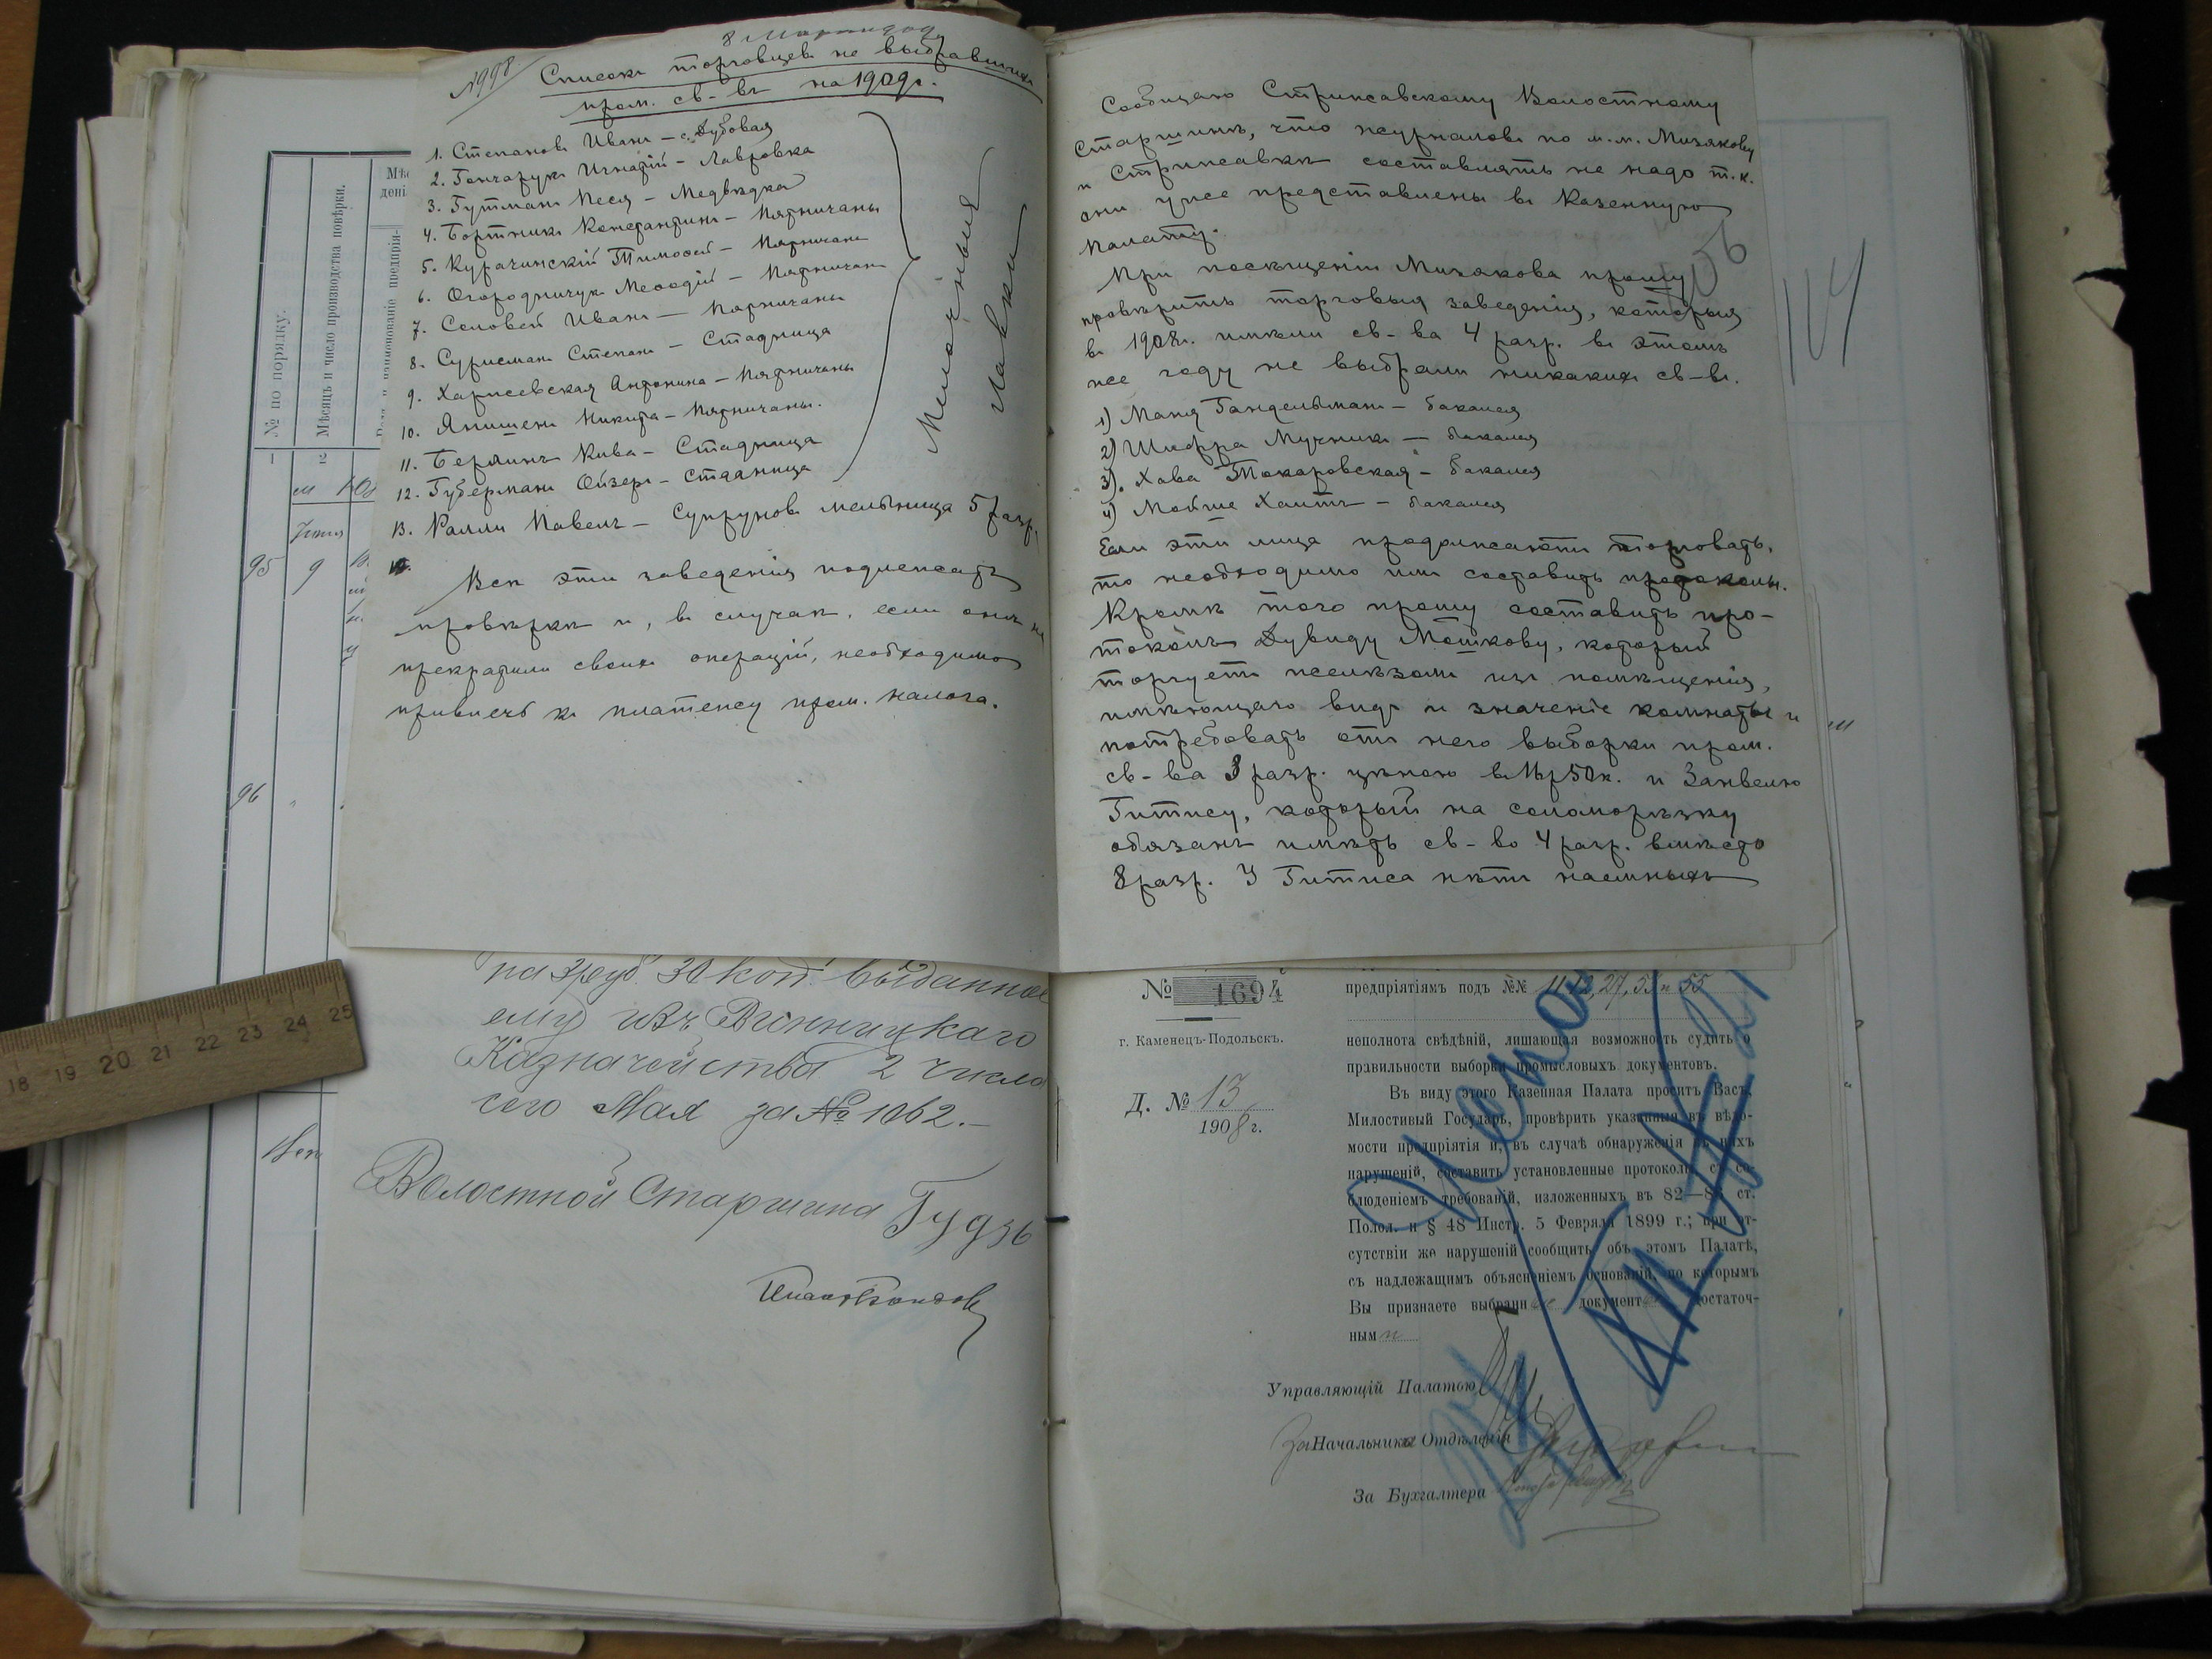 №998.
Списокъ торговцевъ не выбравшихъ
пром. св-въ на 1909г.
1. Степановъ Иванъ – с. Дубовая
2. Гончарукъ Игнатій – Лавровка
3. Гутманъ Песя – Медвѣдка
4. Бортникъ Константинъ – Пятничаны
5. Курачинскій Тимофей – Пятничаны
6. Огородничукъ Меѳодій – Пятничаны
7. Соловей Иванъ – Пятничаны
8. Сурисманъ Степанъ – Стадница
9. Харжевская Антонина – Пятничаны
10. Янишенъ Никита – Пятничаны.
11. Берлинъ Кива – Стадница
12. Губерманъ Ойзеръ – Стадница
Мелочныя
лавки
13. Ралли Павелъ – Супруновъ мельница 5 разр.
Всѣ эти заведенія подлежатъ
провѣркѣ и, въ случаѣ, если онѣ не
прекратили своихъ операцій, необходимо
привлечь къ платежу пром. налога.
на 3 руб. 30 коп. выданное
ему изъ Винницкаго
Казначейства 2 числа
сего Мая за № 1062.–
Волостной Старшина Гудзь
№ по порядку.
Мѣсяцъ и число производства повѣрки.
1
2
95
9
96
Сообщаю Стрижавскому Волостному
Старшинѣ, что журналовъ по м.м. Мизякову
и Стрижавкѣ составлять не надо т.к.
они уже представлены въ Казенную
Палату.
При посѣщеніи Мизякова прошу
провѣрить торговыя заведенія, которыя
въ 1908г. имѣли св-ва 4 разр. въ этомъ
же году не выбрали никакихъ св-въ.
1) Маня Гандельманъ – бакалея
2) Шифра Мучникъ – бакалея
3). Хава Токаровская – бакалея
4) Мойше Хаитъ – бакалея
Если эти лица продолжаютъ торговать,
то необходимо имъ составить протоколы.
Кромѣ того прошу составить про-
токолъ Дувиду Мошкову, который
торгуетъ желѣзомъ изъ помѣщенія,
имѣющаго видъ и значеніе комнаты и
потребовать отъ него выборки пром.
св-ва 3 разр. цѣною въ 16р50к. и Занвелю
Гитису, который на соломорѣзку
обязанъ имѣть св-во 4 разр. вмѣсто
8 разр. У Гитиса нѣтъ наемныхъ
114
№ 1694
г. Каменецъ-Подольскъ.
Д. № 13
1908 г.
предпріятіямъ подъ №№ 11, 12, 27, 53 и 55
неполнота свѣдѣній, лишающая возможность судить о
правильности выборки промысловыхъ документовъ.
Въ виду этого Казенная Палата проситъ Васъ,
Милостивый Государь, провѣрить указанныя въ вѣдо-
мости предпріятія и, въ случаѣ обнаруженія въ нихъ
нарушеній, составить установленные протоколы съ со-
блюденіемъ требованій, изложенныхъ въ 82— ст.
Полож. и § 48 Инстр. 5 Февраля 1899 г.; при от-
сутствіи же нарушеній сообщить объ этомъ Палатѣ,
съ надлежащимъ объясненіемъ основаній, по которымъ
Вы признаете выбранн документ достаточ-
ным
Управляющій Палатою
За Начальника Отдѣленія
За Бухгалтера